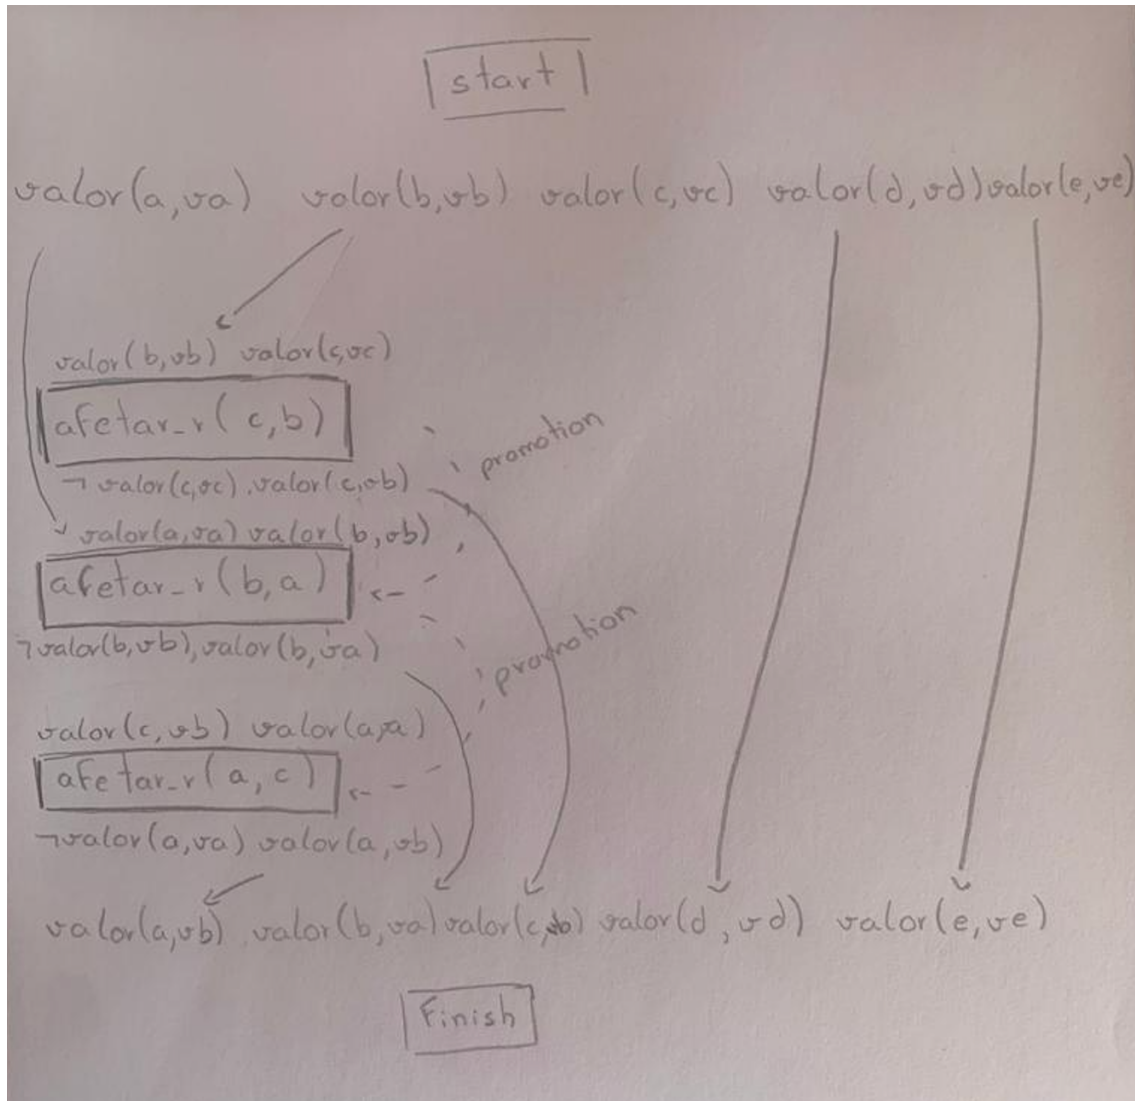 start
valor(a,va) valor(b,vb) valor(c,vc) valor(d,vd) valor(e,ve)
valor(b,vb) valor(c,vc)
afetar_r(c,b)
¬valor(c,vc), valor(c,vb)
promotion
valor(a,va) valor(b,vb)
afetar_r(b,a)
¬valor(b,vb), valor(b,va)
promotion
valor(c,vb) valor(a,va)
afetar_r(a,c)
¬valor(a,va) valor(a,vb)
valor(a,vb) valor(b,va) valor(c,vb) valor(d,vd) valor(e,ve)
Finish